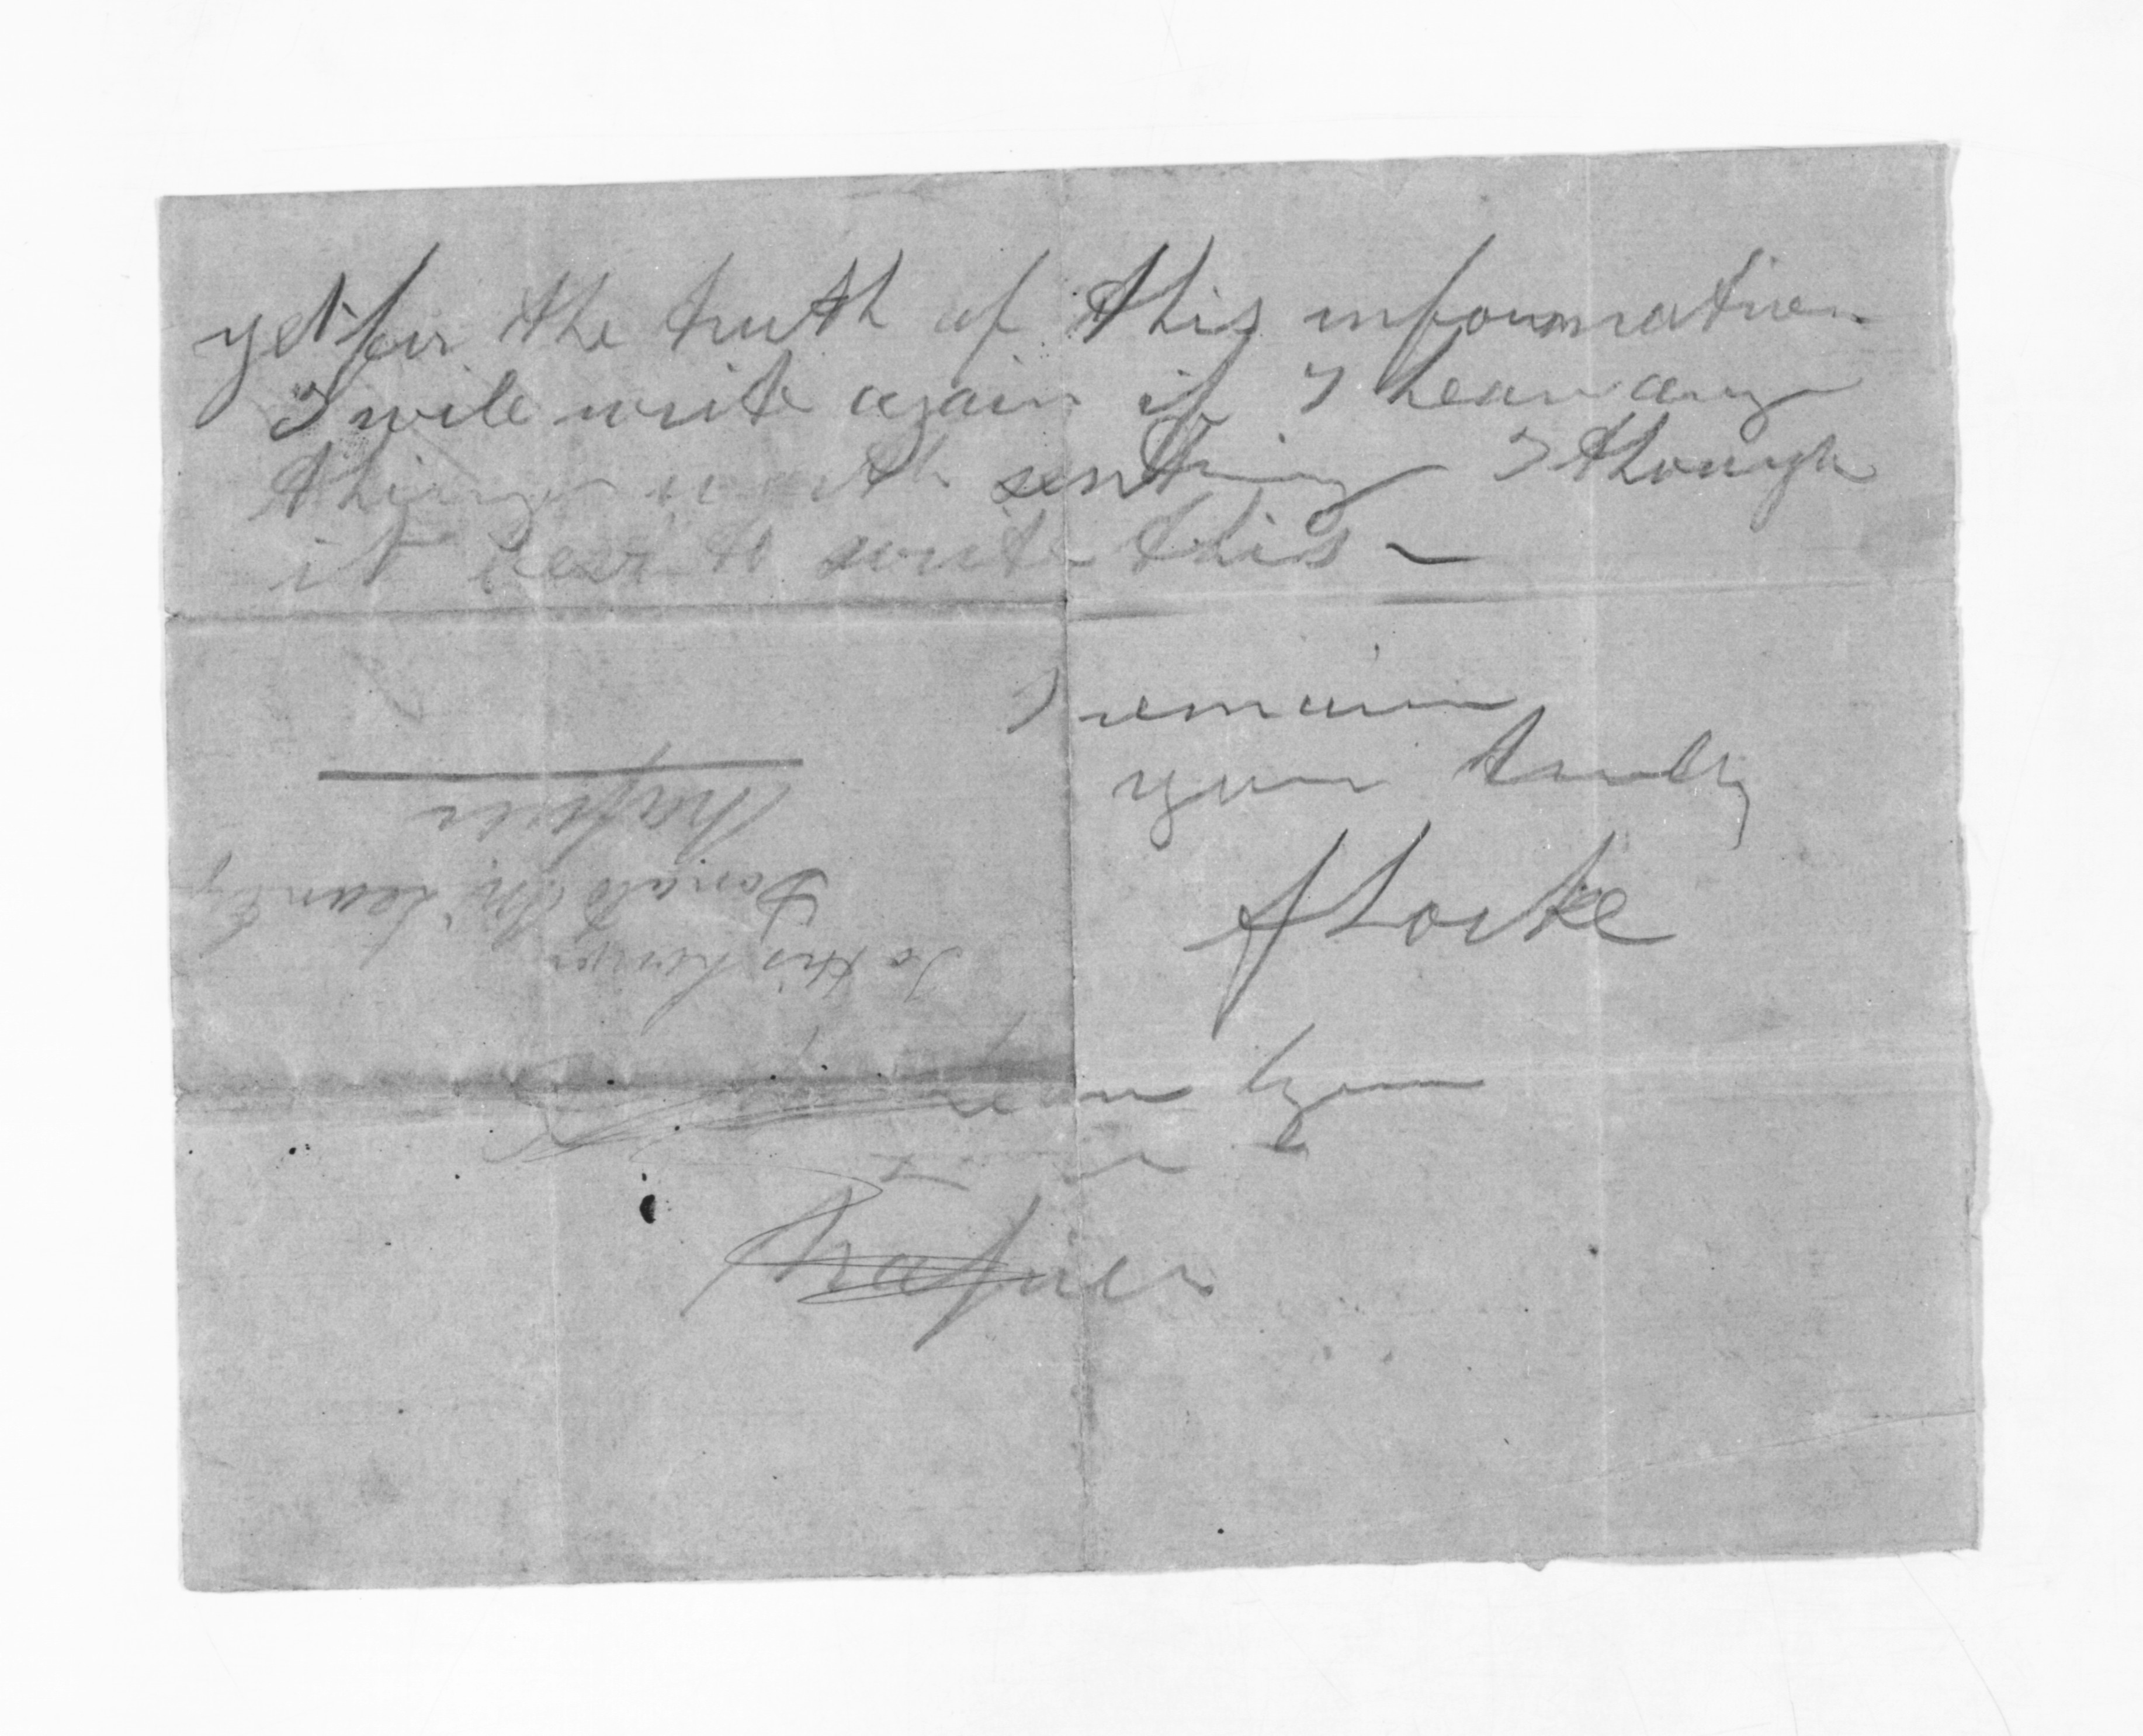 yet for the truth of this information
I will write again if I hear any
thing worth sending I though
it best to write this —
I remain
your truly
S Locke
To His honor
Donald McLean Esq
Napier
Napier